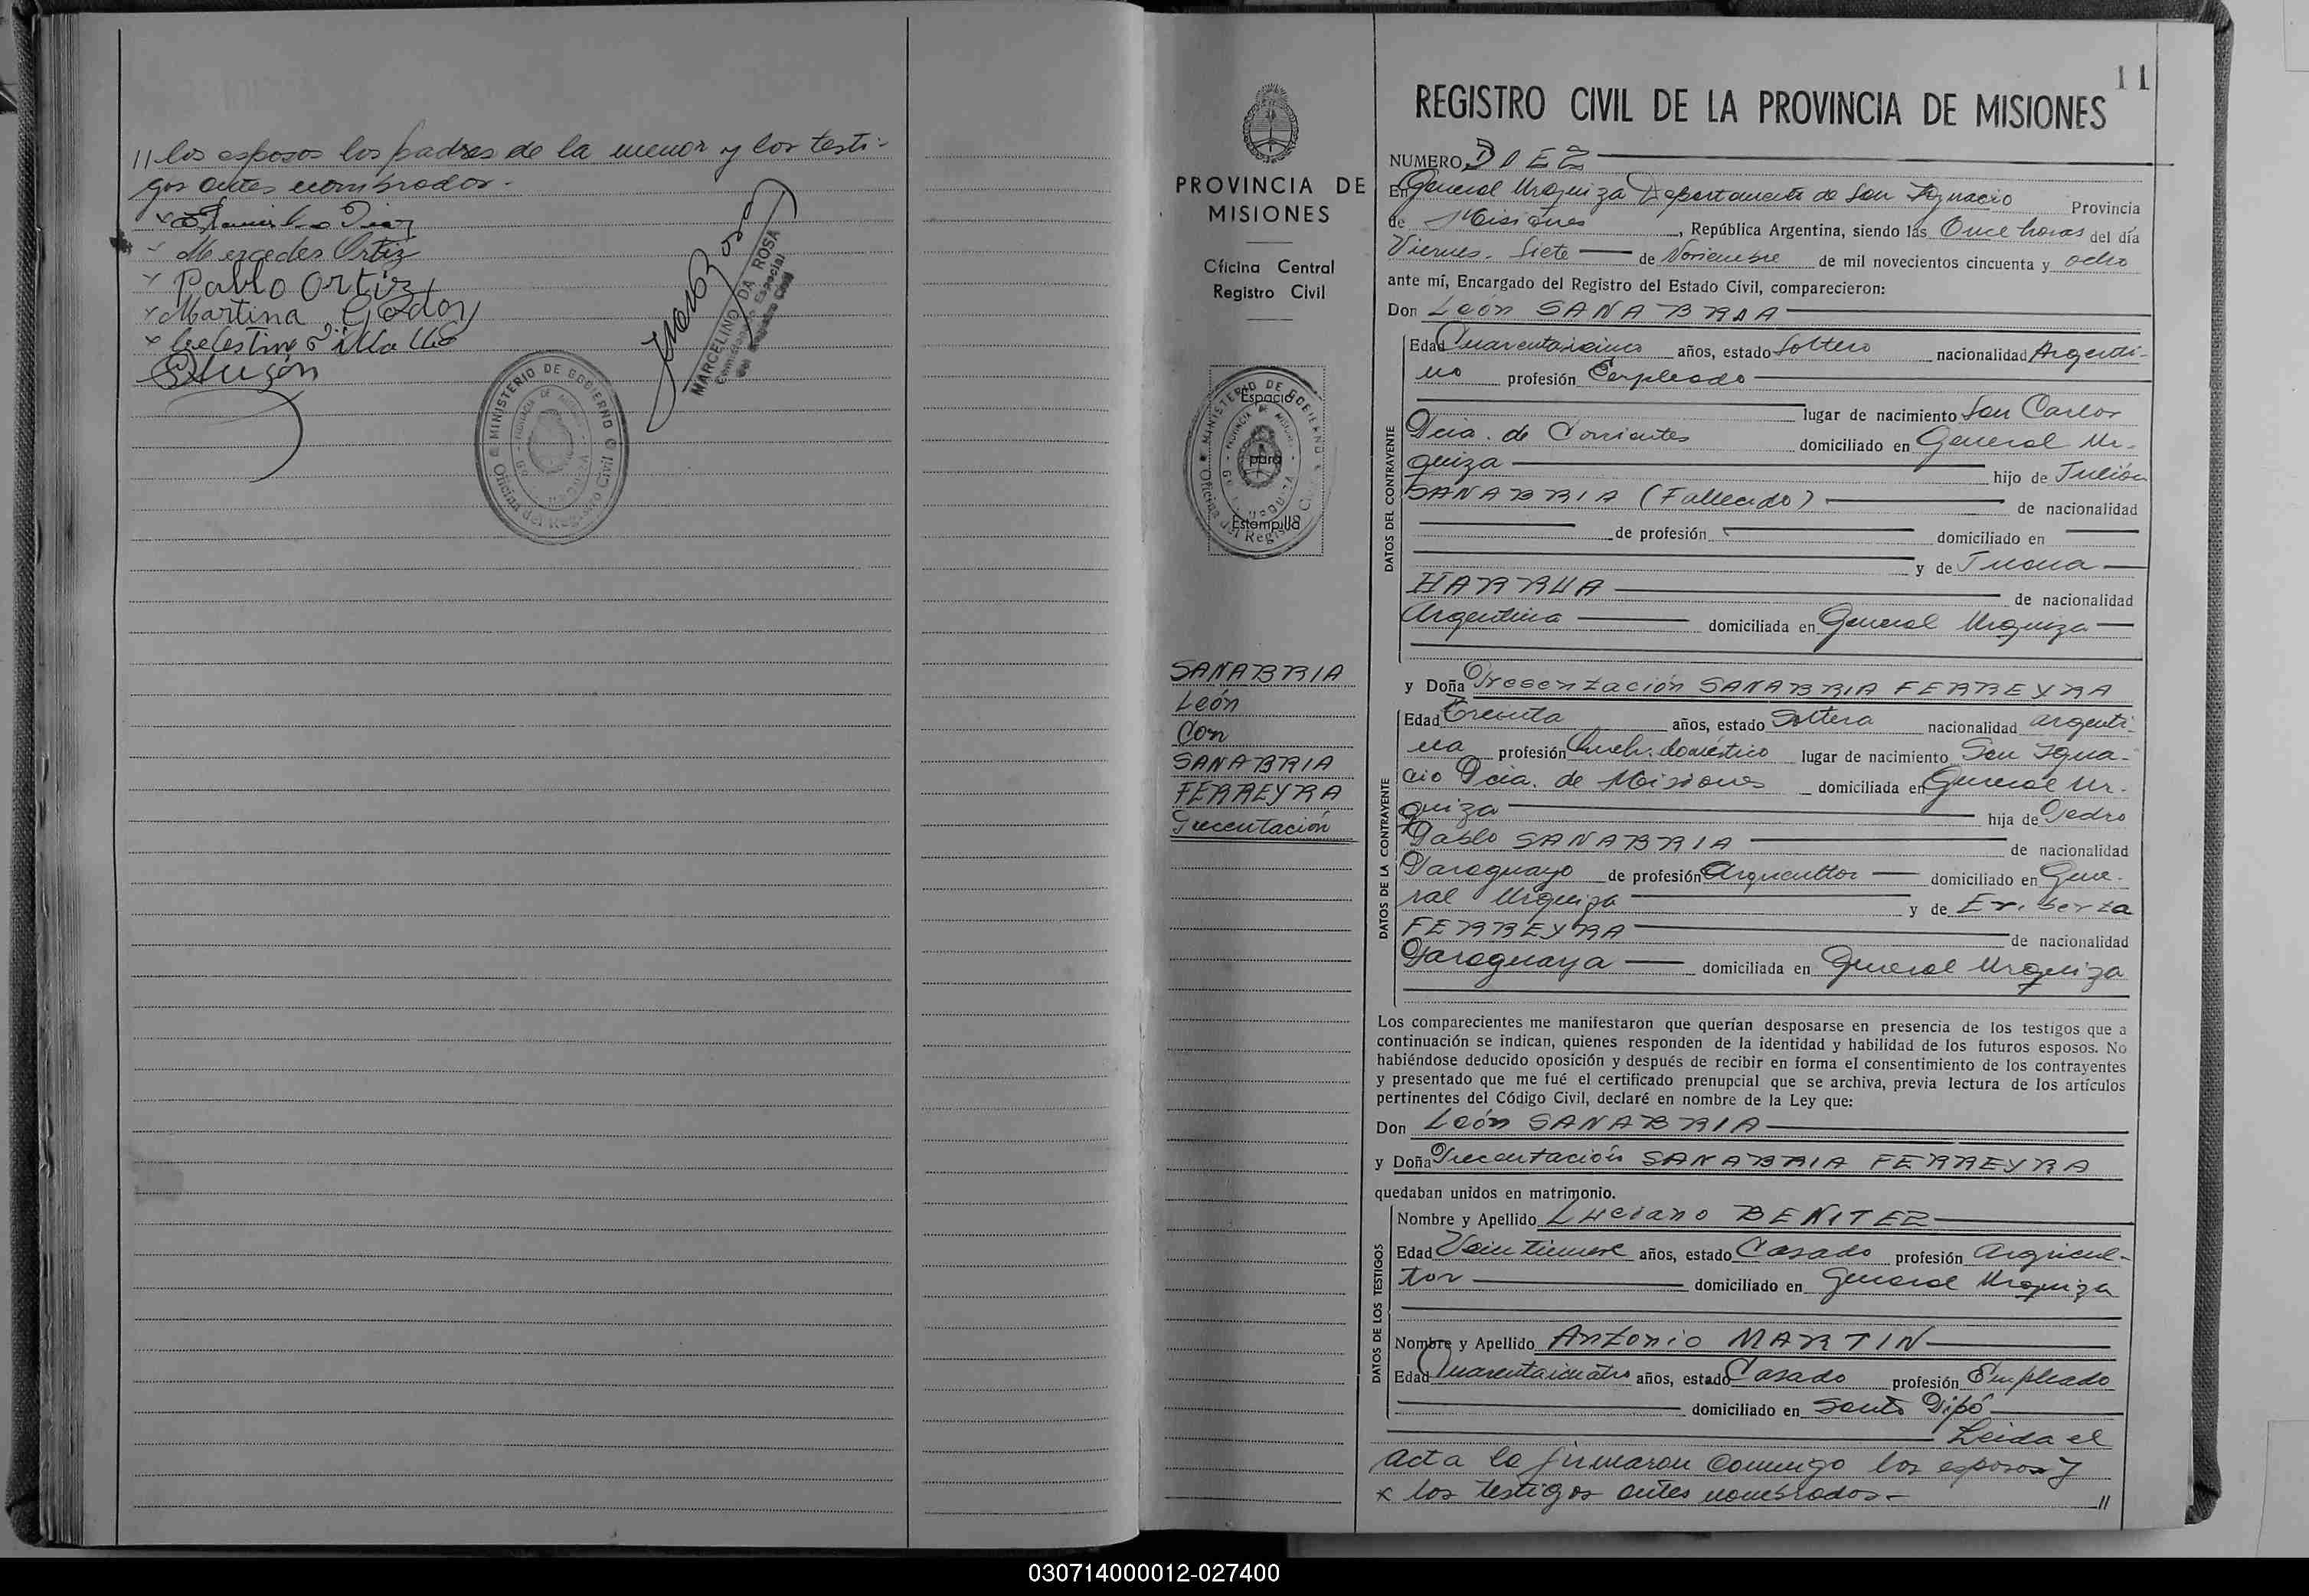 // los esposos los padres de la menor y los testi-
gos antes nombrados.-
Mercedes Ortiz
Pablo Ortiz
Martina Godoy
Celestino Villalba
MARCELINO DA ROSA
Comisionado Especial
del Registro Civil
MINISTERIO DE GOBIERNO
Oficina del Registro Civil
PROVINCIA DE
MISIONES
Oficina Central
Registro Civil
Espacio
para
Estampilla
MINISTERIO DE GOBIERNO
Oficina del Registro Civil
SANABRIA
León
Con
SANABRIA
FERREYRA
Precentación
11
REGISTRO CIVIL DE LA PROVINCIA DE MISIONES
NUMERO DIEZ
En General Urquiza Departamento de San Ignacio Provincia
de Misiones, República Argentina, siendo las Once horas del día
Viernes. Siete de Noviembre de mil novecientos cincuenta y ocho
ante mí, Encargado del Registro del Estado Civil, comparecieron:
Don León SANABRIA
DATOS DEL CONTRAYENTE
Edad Cuarentaicinco años, estado Soltero nacionalidad Argenti-
no profesión Empleado
lugar de nacimiento San Carlos
Pcia. de Corrientes domiciliado en General Ur-
quiza hijo de Julián
SANABRIA (Fallecido) de nacionalidad
de profesión domiciliado en
y de Juana
de nacionalidad
Argentina domiciliada en General Urquiza
y Doña Precentación SANABRIA FERREYRA
DATOS DE LA CONTRAYENTE
Edad Treinta años, estado Soltera nacionalidad argenti-
na profesión Queh. doméstico lugar de nacimiento San Igna-
cio Pcia. de Misiones domiciliada en General Ur-
quiza hija de Pedro
Pablo SANABRIA de nacionalidad
Paraguayo de profesión Argricultor domiciliado en Gene-
ral Urquiza y de Eriberta
FERREYRA de nacionalidad
Paraguaya domiciliada en General Urquiza
Los comparecientes me manifestaron que querían desposarse en presencia de los testigos que a
continuación se indican, quienes responden de la identidad y habilidad de los futuros esposos. No
habiéndose deducido oposición y después de recibir en forma el consentimiento de los contrayentes
y presentado que me fué el certificado prenupcial que se archiva, previa lectura de los artículos
pertinentes del Código Civil, declaré en nombre de la Ley que:
Don León SANABRIA
y Doña Precentación SANABRIA FERREYRA
quedaban unidos en matrimonio.
DATOS DE LOS TESTIGOS
Nombre y Apellido Luciano BENITEZ
Edad Veintinueve años, estado Casado profesión Argricul-
tor domiciliado en General Urquiza
Nombre y Apellido Antonio MARTIN
Edad Cuarentaicuatro años, estado Casado profesión Empleado
domiciliado en Santo Pipó
Leida el
acta la firmaron conmigo los esposos y
x los testigos antes nombrados.- //
030714000012-027400